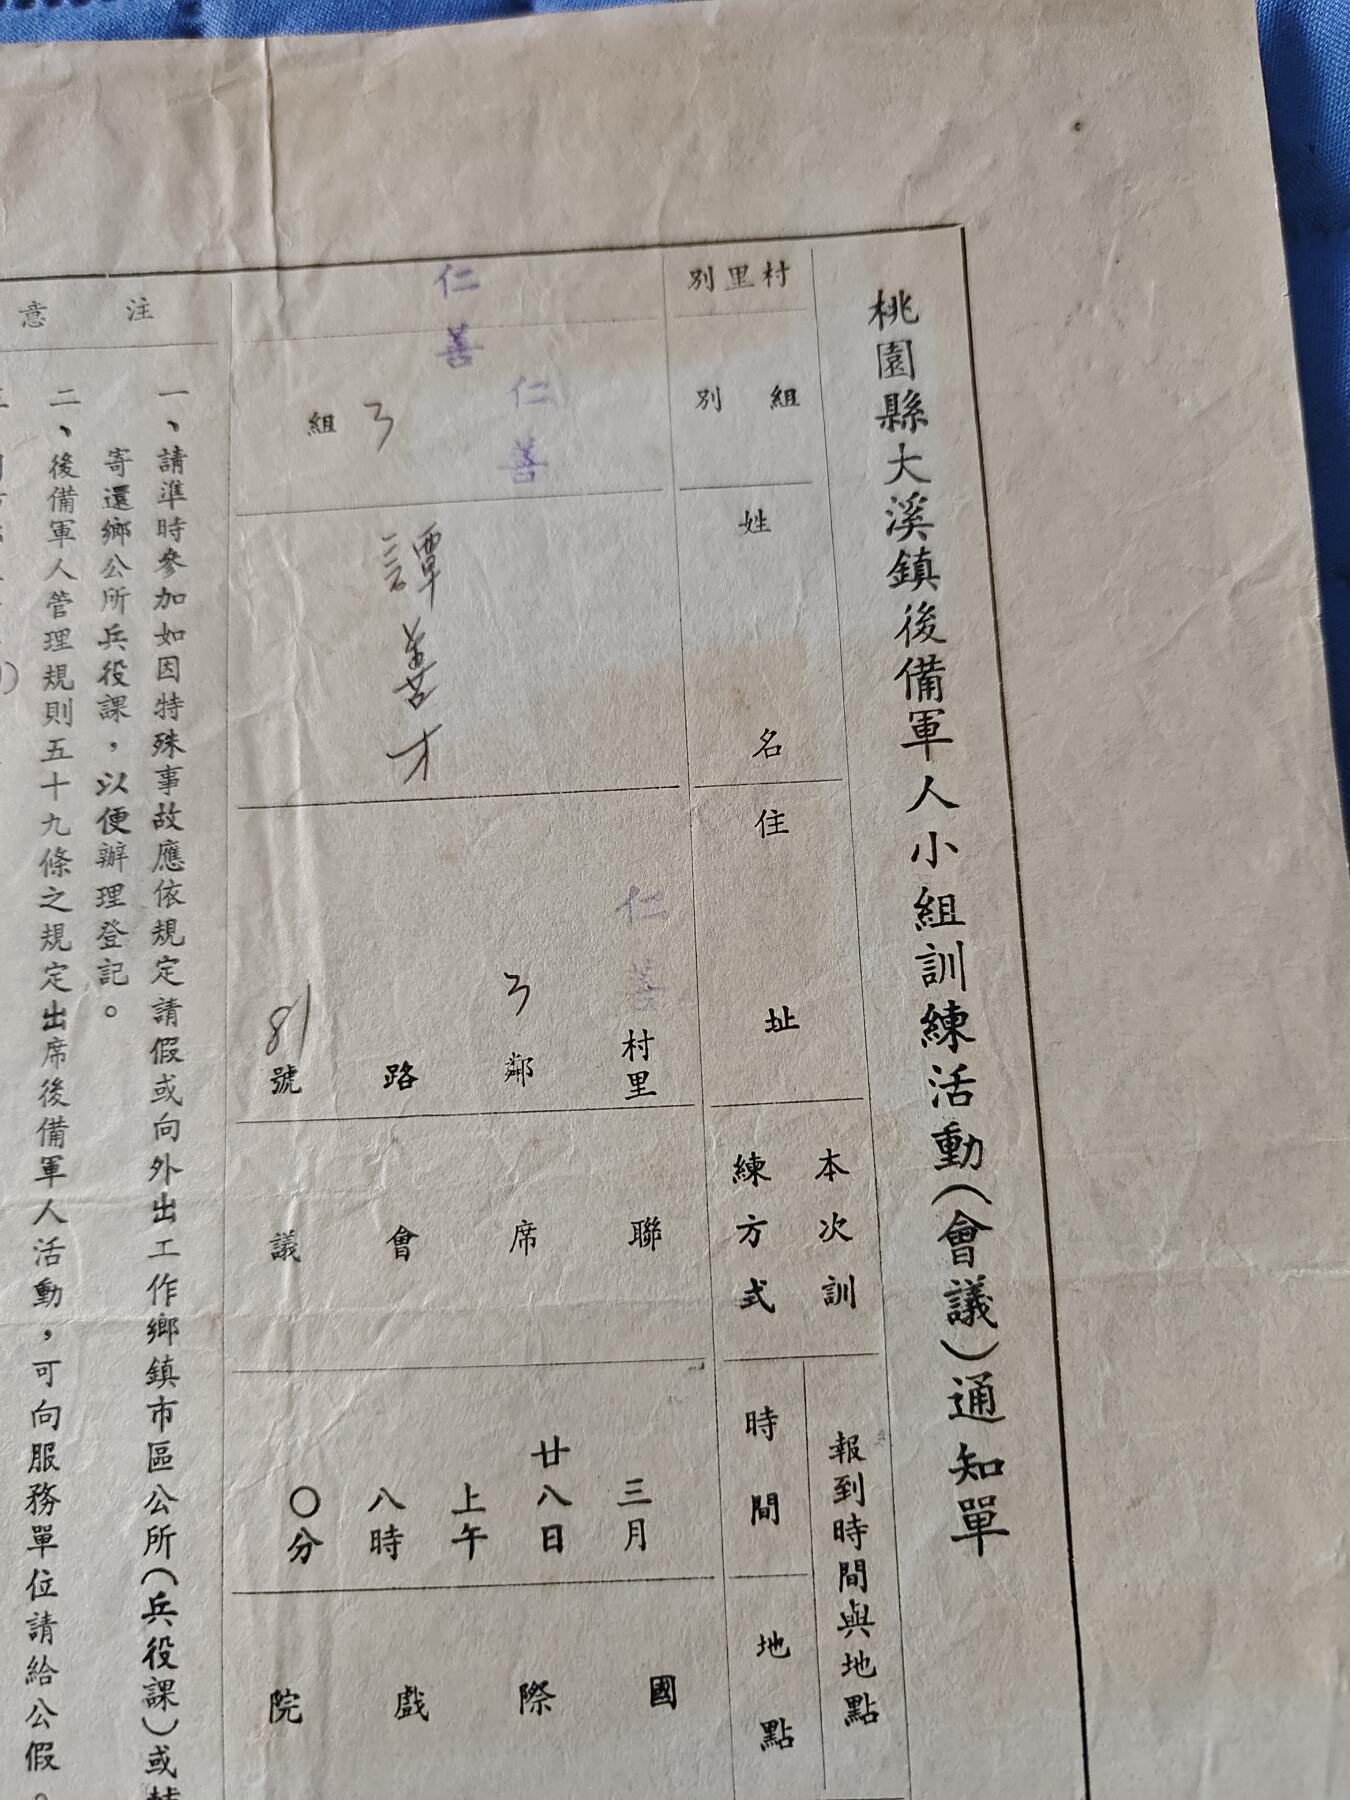 桃園縣大溪鎮後備軍人小組訓練活動(會議)通知單
村里別
仁善
組別
仁善
3組
姓名
譚善才
住址
仁善村里
3鄰
路
81號
本次訓練方式
聯席會議
報到時間與地點
時間
三月
廿八日
上午
八時
〇分
地點
國際戲院
注意
一、請準時參加如因特殊事故應依規定請假或向外出工作鄉鎮市區公所(兵役課)或
寄還鄉公所兵役課,以便辦理登記。
二、後備軍人管理規則五十九條之規定出席後備軍人活動,可向服務單位請給公假。
三